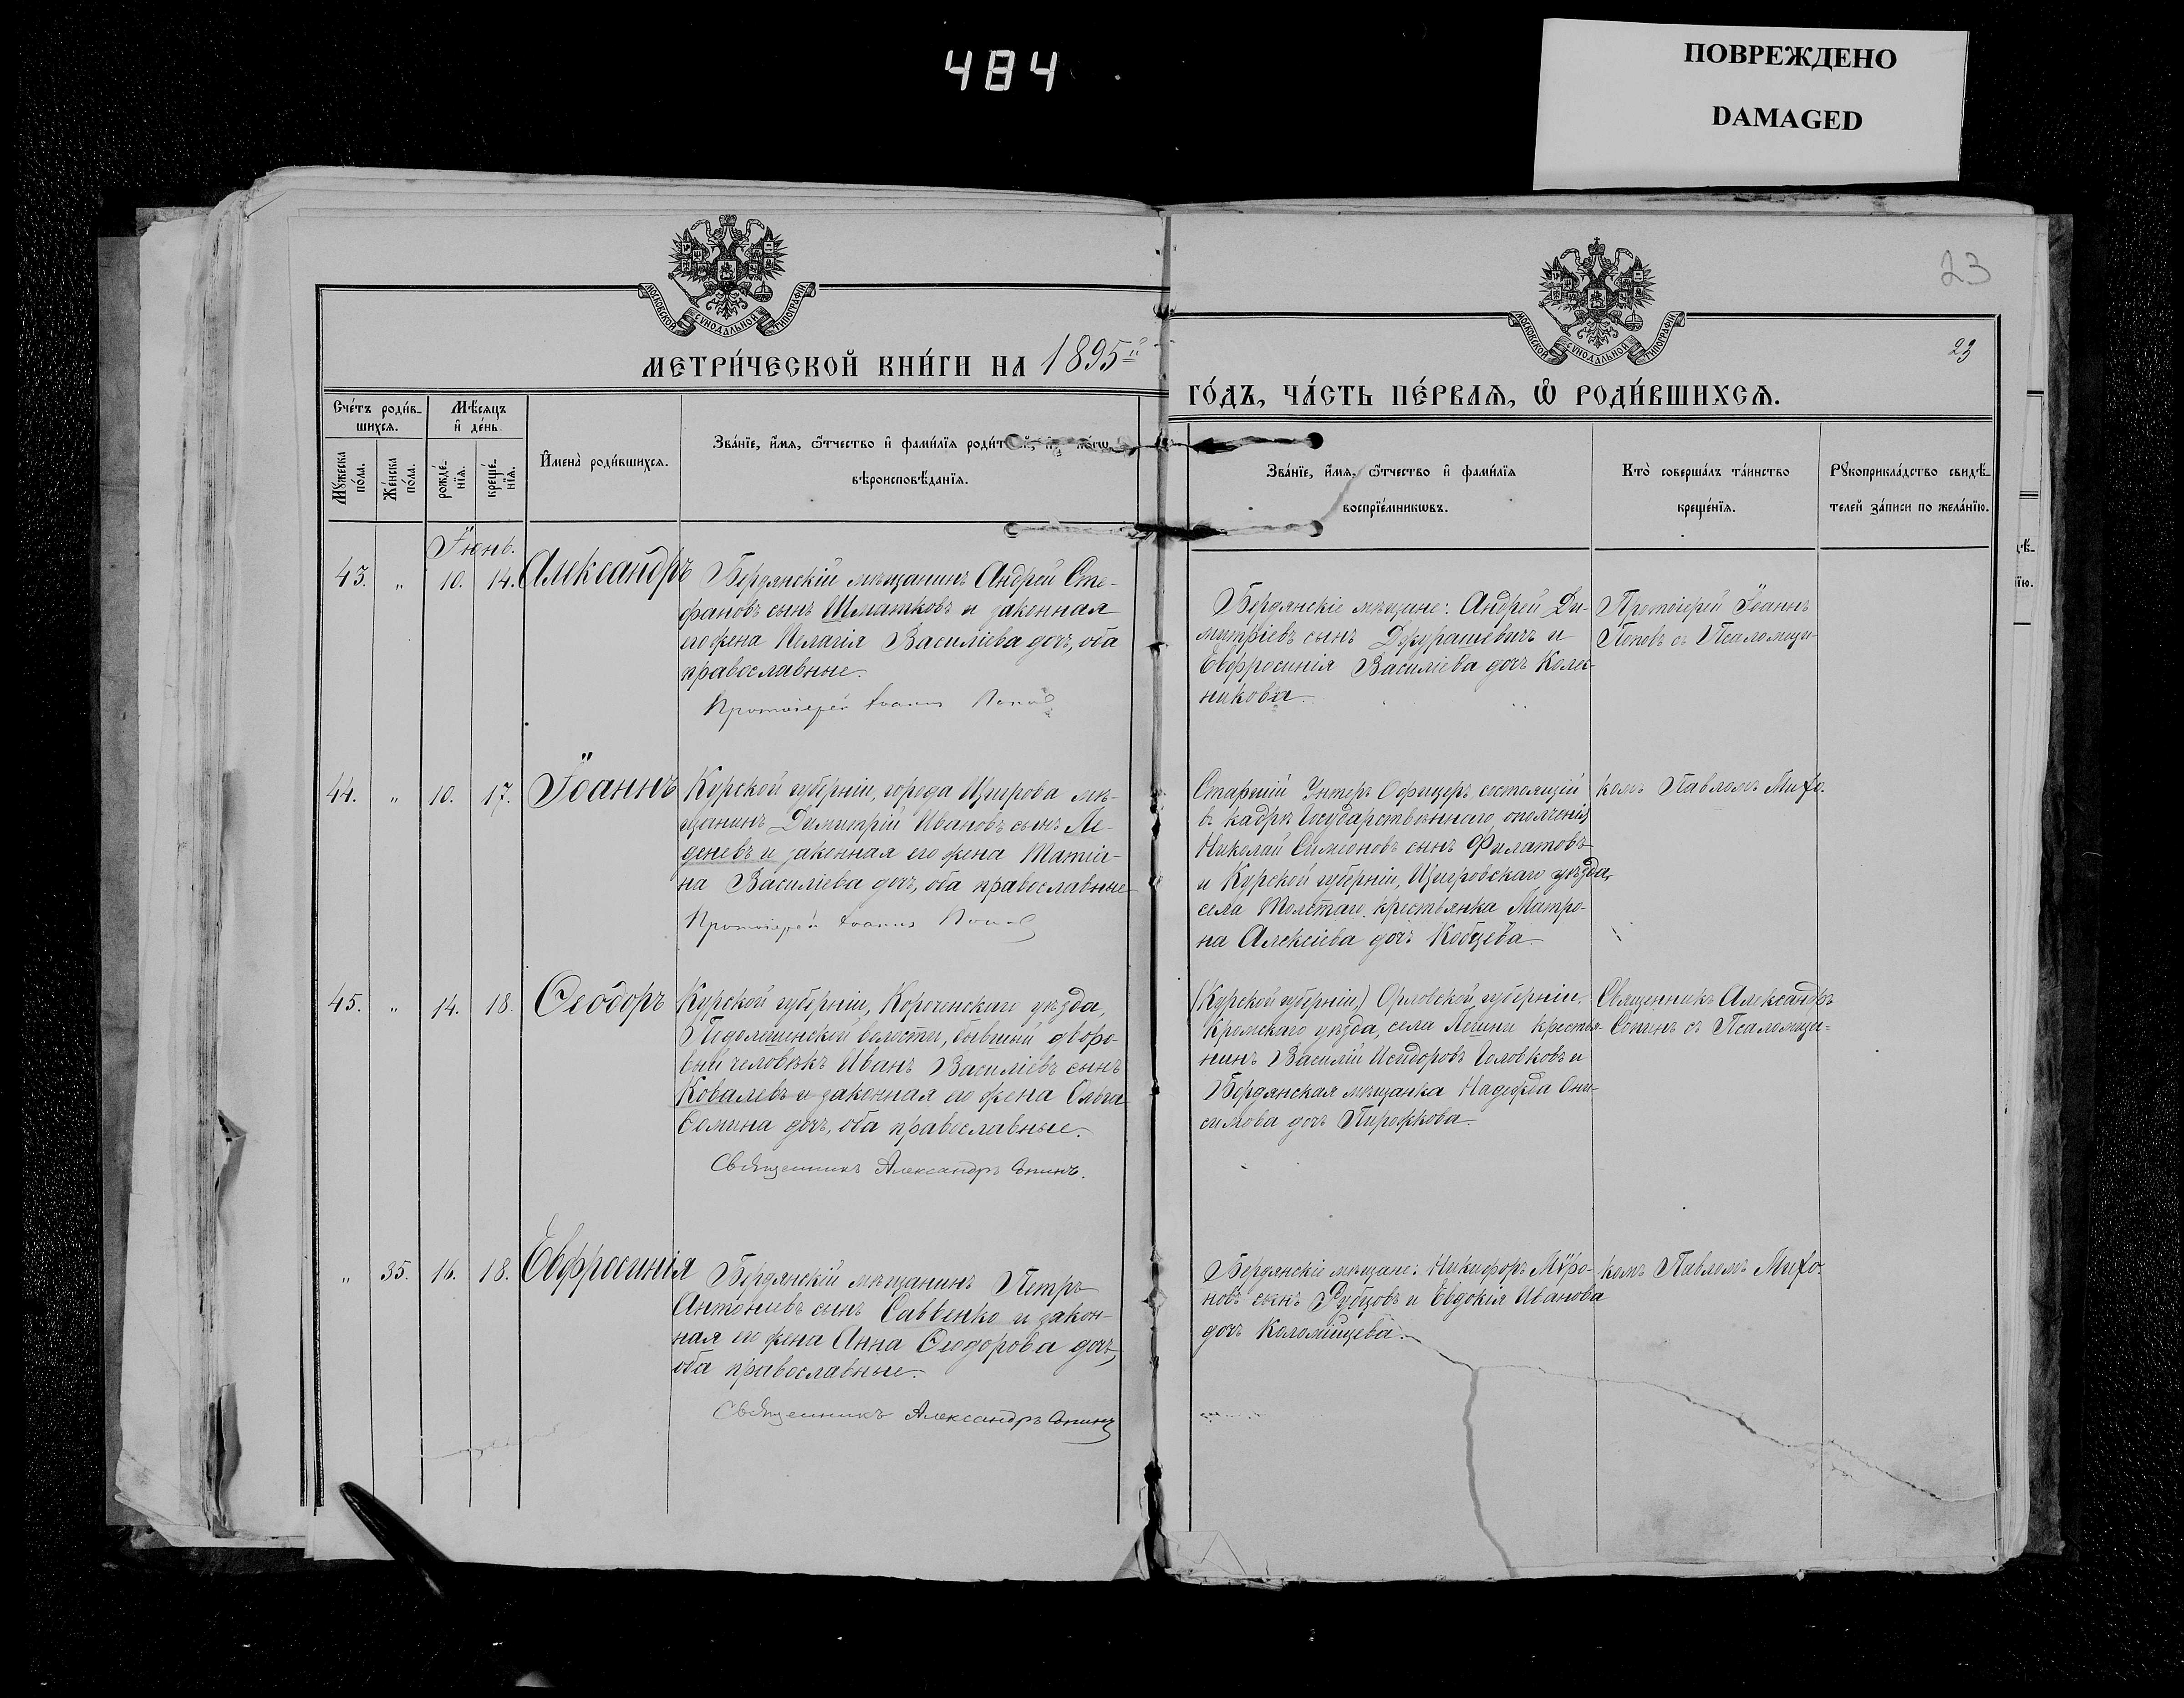 484
ПОВРЕЖДЕНО
DAMAGED
23
МОСКОВСКОЙ СѴНОДАЛЬНОЙ ТИПОГРАФІИ
МОСКОВСКОЙ СѴНОДАЛЬНОЙ ТИПОГРАФІИ
МЕТРИ́ЧЕСКОЙ КНИ́ГИ НА 1895й
ГО́ДЪ, ЧА́СТЬ ПЕ́РВАѦ, Ѡ҆ РОДИ́ВШИХСѦ.
23
Сче́тъ роди́в-
шихсѧ.
Мѣ́сѧцъ
и҆ де́нь.
Мꙋ́жеска
по́ла.
Же́нска
по́ла.
рожде́-
нїѧ.
креще́-
нїѧ.
И҆мена̀ роди́вшихсѧ.
Зва́нїе, и҆́мѧ, ѻ҆́тчество и҆ фами́лїѧ роди́т
вѣроисповѣ́данїѧ.
Зва́нїе, и҆́мѧ, ѻ҆́тчество и҆ фами́лїѧ
воспрїе́мникѡвъ.
Кто̀ соверша́лъ та́инство
креще́нїѧ.
Рꙋкоприкла́дство свидѣ́-
телей за́писи по жела́нїю.
Іюнь.
43. " 10. 14. Александръ
Бердянскій мѣщанинъ Андрей Сте-
фановъ сынъ Шматковъ и законная
его жена Пелагія Василіева дочь, оба
православные.
Протоіерей Іоаннъ Поповъ
Бердянскіе мѣщане: Андрей Ди-
митріевъ сынъ Джурашевичъ и
Евфросинія Василіева дочь Коле-
никова.
Протоіерей Іоаннъ
Поповъ съ Псаломщи-
44. " 10. 17. Іоаннъ
Курской губерніи, города Щигрова мѣ-
щанинъ Димитрій Ивановъ сынъ Ле-
деневъ и законная его жена Татіа-
на Василіева дочь, оба православные
Протоіерей Іоаннъ Поповъ
Старшій Унтеръ Офицеръ состоящій
въ кадрѣ Государственнаго ополченія
Николай Симеоновъ сынъ Филатовъ
и Курской губерніи, Щигровскаго уѣзда,
села Толстаго крестьянка Матро-
на Алексіева дочь Кобцева.
комъ Павломъ Михо.
45. " 14. 18. Ѳеодоръ
Курской губерніи, Короченскаго уѣзда,
волости, бывшій дворо-
вый человѣкъ Иванъ Василіевъ сынъ
Ковалевъ и законная его жена Ольга
Ѳомина дочь, оба православные.
Священникъ Александръ Сопинъ.
(Курской губерніи,) Орловской губерніи,
Кромскаго уѣзда, села крестья-
нинъ Василій Исидоровъ Головковъ и
Бердянская мѣщанка Надежда Они-
симова дочь Пирожкова.
Священникъ Александръ
Сопинъ съ Псаломщи-
" 35. 16. 18. Евфросинія
Бердянскій мѣщанинъ Петръ
Антоніевъ сынъ Саввенко и закон-
ная его жена Анна Ѳеодорова дочь,
оба православные.
Священникъ Александръ Сопинъ
Бердянскіе мѣщане: Никифоръ Мѵро-
новъ сынъ Рубцовъ и Евдокія Иванова
дочь Коломійцева.
комъ Павломъ Михо.